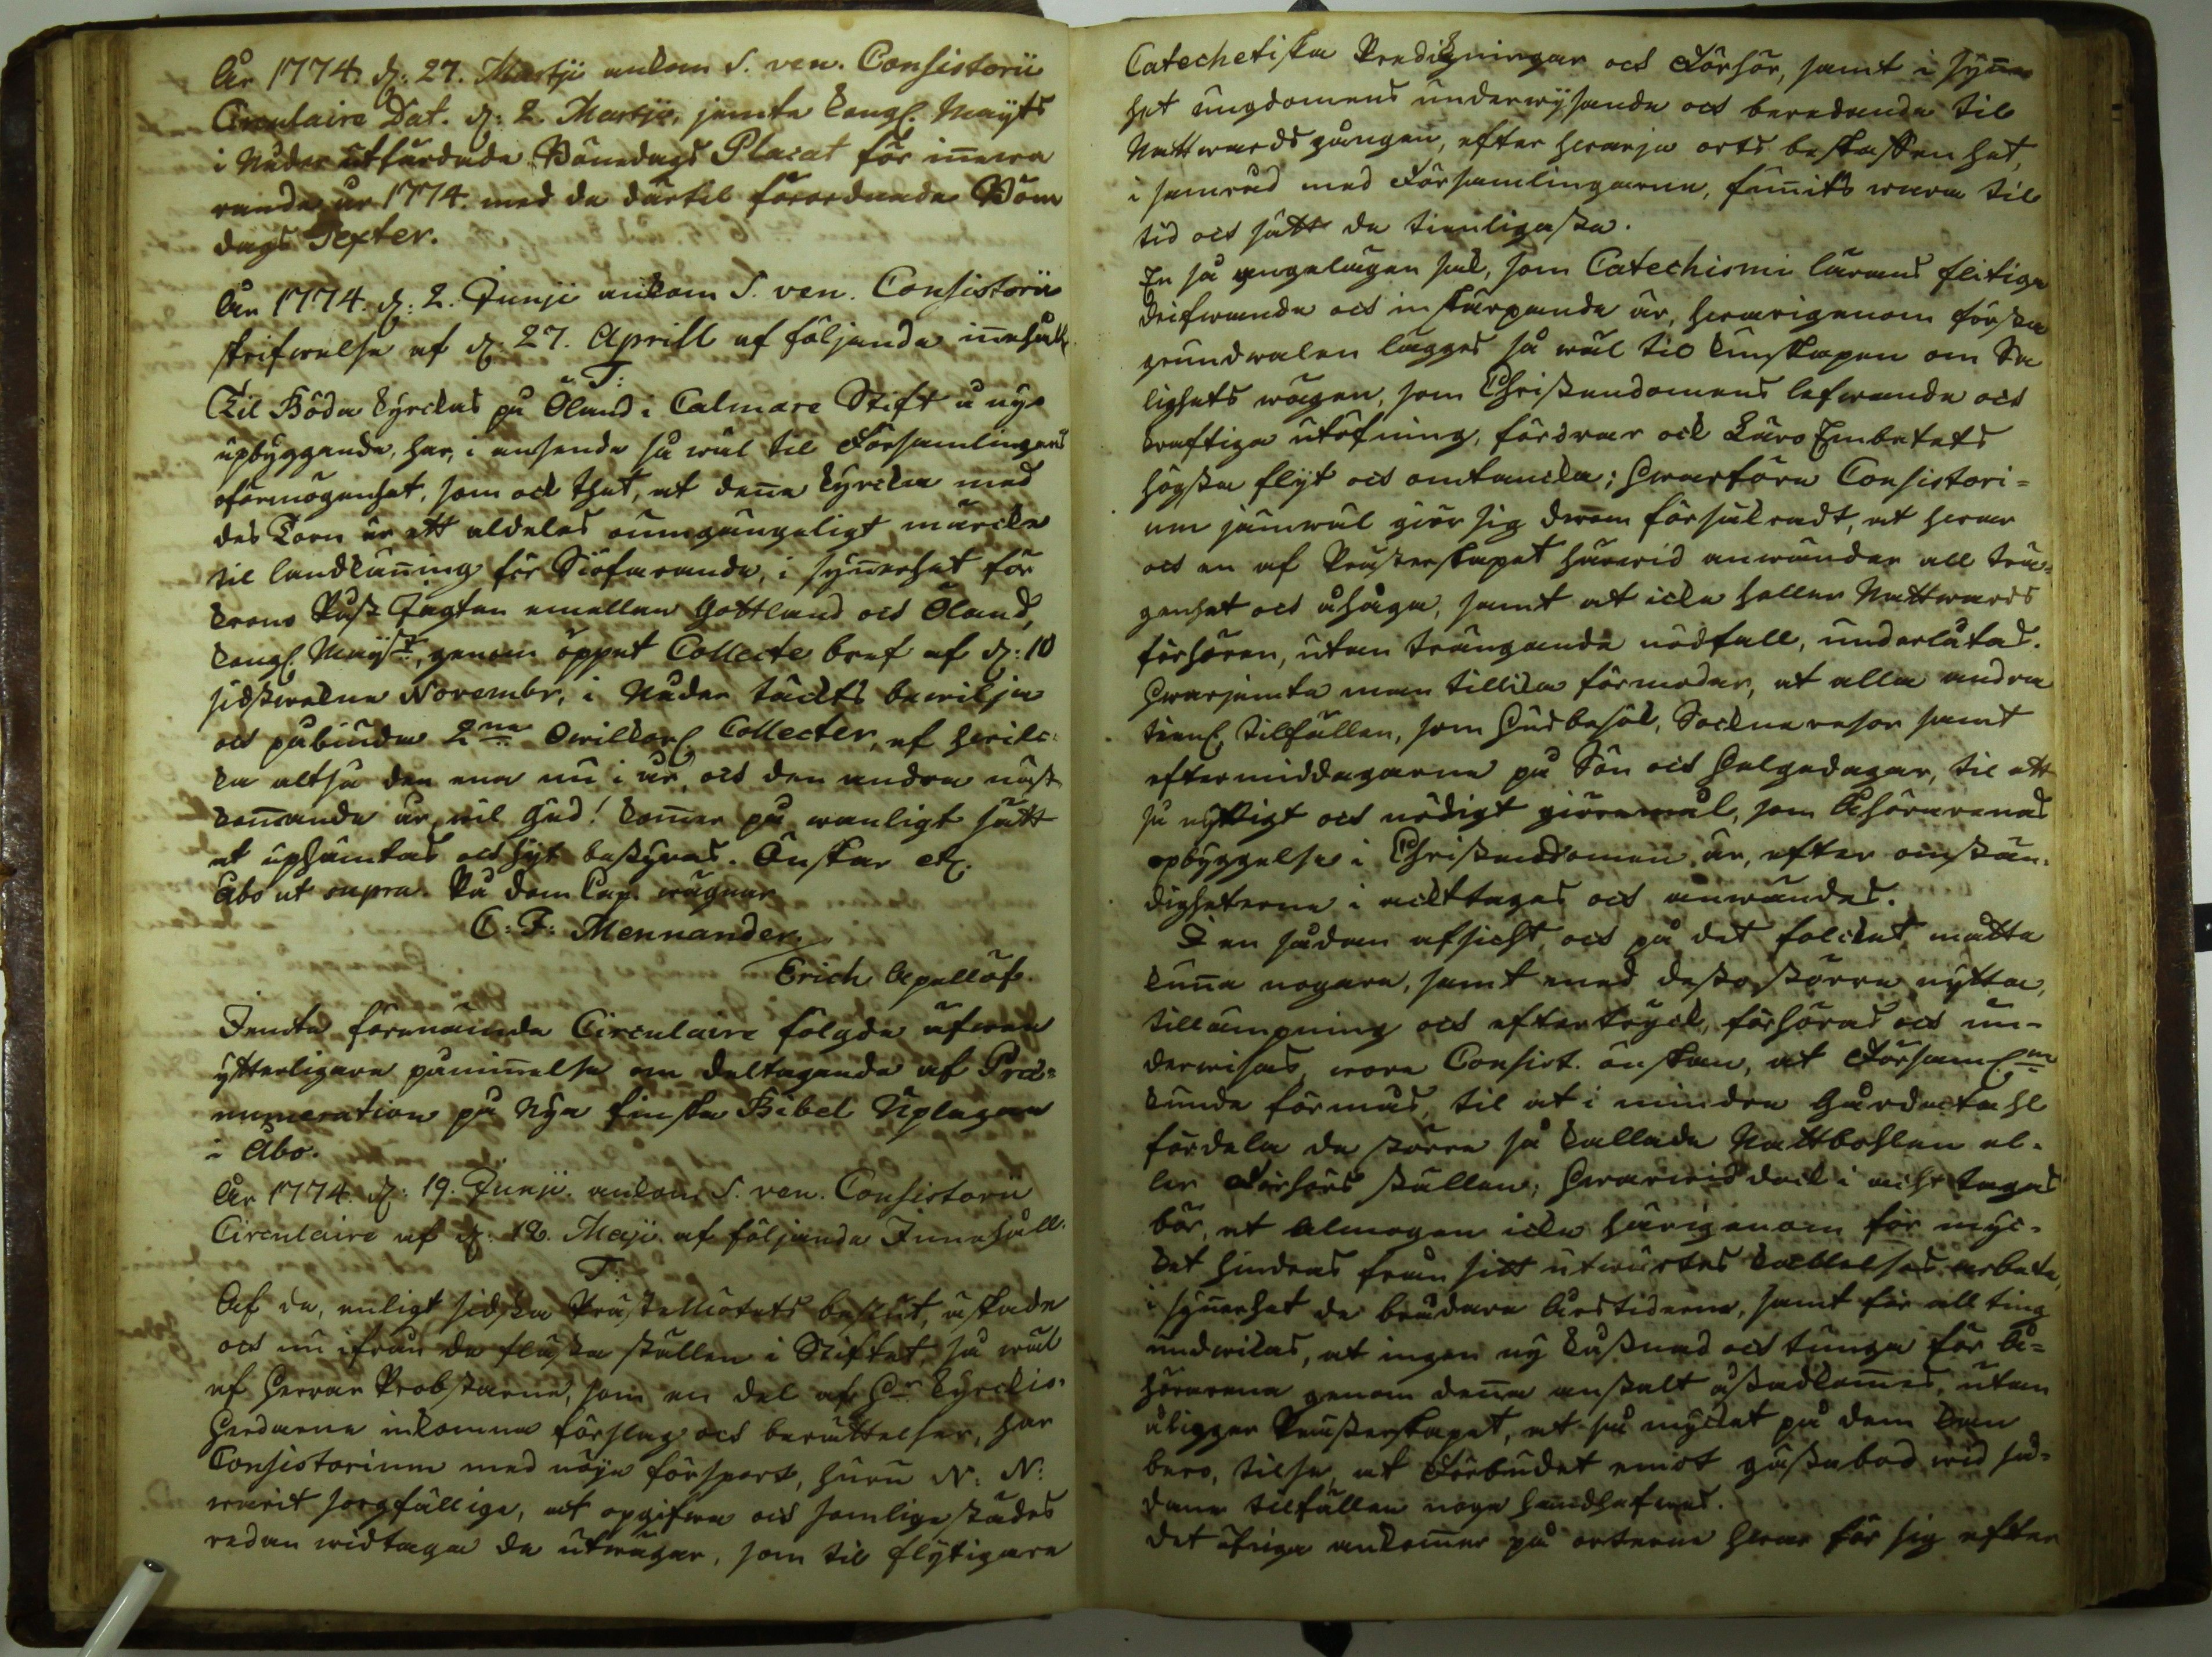 År 1774. d: 27. Martji ankom S. ven. Consistorii
Circulaire Dat. d: 2. Martji, jemte Kongl. Mayts
i Nåder utfärdade Bönedags Placat för inneva
rande år 1774. med de därtil förordnade Böne
dags Texter.
År 1774. d: 2. Junji ankom S. ven. Consistorii
skrifwelse af d: 27. Aprill af följande innehåll
T:
Til Böda kyrckas på Öland i Calmare Stift å nyo
upbyggande, har, i anseende så wäl til Församlingens
oförmögenhet, som ock thet, at denna kyrcka med
des Torn är ett aldeles oumgängeligt märcke
til landkänning för Siöfarande, i synnerhet för
Krono Påst Jagten emellan Gottland och Öland,
Kongl. Mayst:, genom öppet Collecte bref af d: 10
sidstwekne Novembr, i Nåder täckts bewilja
och påbiuda 2ne Owilkorl. Collecter, af hwilc-
ka altså den ena nu i år, och den andra näst
kommande år, wil Gud! kommer på wanligt sätt
at uphämtas och hijt bestyras. Önskar etc.
Åbo ut supra. På Dom Cap. wägnar
C: F: Mennander.
Erich Apellöf.
Jemte förenämnde Circulaire fölgde äfwen
ytterligare påminnelse om deltagande af Præ-
numeration på Nya finska Bibel Uplagan
i Åbo.
År 1774. d: 19. Junji. ankom S. ven. Consistorii
Circulaire af d: 18. Maji. af följande Innehåll.
T:
Af de, enligt sidsta Prästemötets beslut, äskade
och nu ifrån de flästa ställen i Stiftet, så wäl
af Herrar Probstarne, som en del af Hr Kyrckio-
Herdarne inkomne förslag och berättelser, har
Consistorium med nöje försport, huru N: N:
warit sorgfällige, at opgifwa och somlige städes
redan widtaga de utwägar, som til flytigare
Catechetiska Predikningar och Förhör, samt i synner
het ungdomens underwysande och beredande til
Nattwardsgången, efter hwarje orts beskaffenhet,
i samråd med Församlingarne, funnits wara til
tid och sätt de tienligaste.
En så angelägen sak, som Catechismi lärans flitiga
drifwande och inskärpande är, hwarigenom första
grundwalen lägges så wäl til kunskapen om Sa
lighets wägen, som Christendomens lefwande och
kraftiga utöfning, fordrar ock Läro Embetets
högsta flyt och omtancka; Hwarföre Consistori-
um jämwäl giör sig derom försäkradt, at hwar
och en af Prästerskapet härwid anwänder all trä-
genhet och åhåga, samt at icke heller Nattwards
förhören, utan trängande nödfall, underlåtas.
Hwarjemte man tillika förmodar, at alla andra
tienl. tilfällen, som Husbesök, Sockne resor samt
eftermiddagarne på Sön och Helgedagar, til ett
så nyttigt och nödigt giöremål, som Åhörarenas
opbyggelse i Christendomen är, efter omstän-
digheterne i ackttages och anwändes.
I en sådan afsicht, och på det folcket måtte
kunna nogare, samt med desto större nytta,
tillämpning och eftertryck, förhöras och un-
derwisas, wore Consist. önskan, at Församl.ne
kunde förmås, til at i mindre Gårdatahl
fördela de större så kallade Nattbohlen el-
ler Förhörs ställen; Hwarwid dock i acht tagas
bör, at Almogen icke härigenom för myc-
ket hindras från sitt utwärtes kallelses arbete,
i synnerhet de brådare Årstiderne, samt för all ting
undwikas, at ingen ny kåstnad och tunga för Å-
hörarena genom denna anstalt åstadkommes, utan
åligger Prästerskapet, at så mycket på dem kan
bero, tilse, at Förbudet emot gästabod wid så-
dane tilfällen noga handhafwes.
Det öfriga ankommer på orterne hwar för sig efter